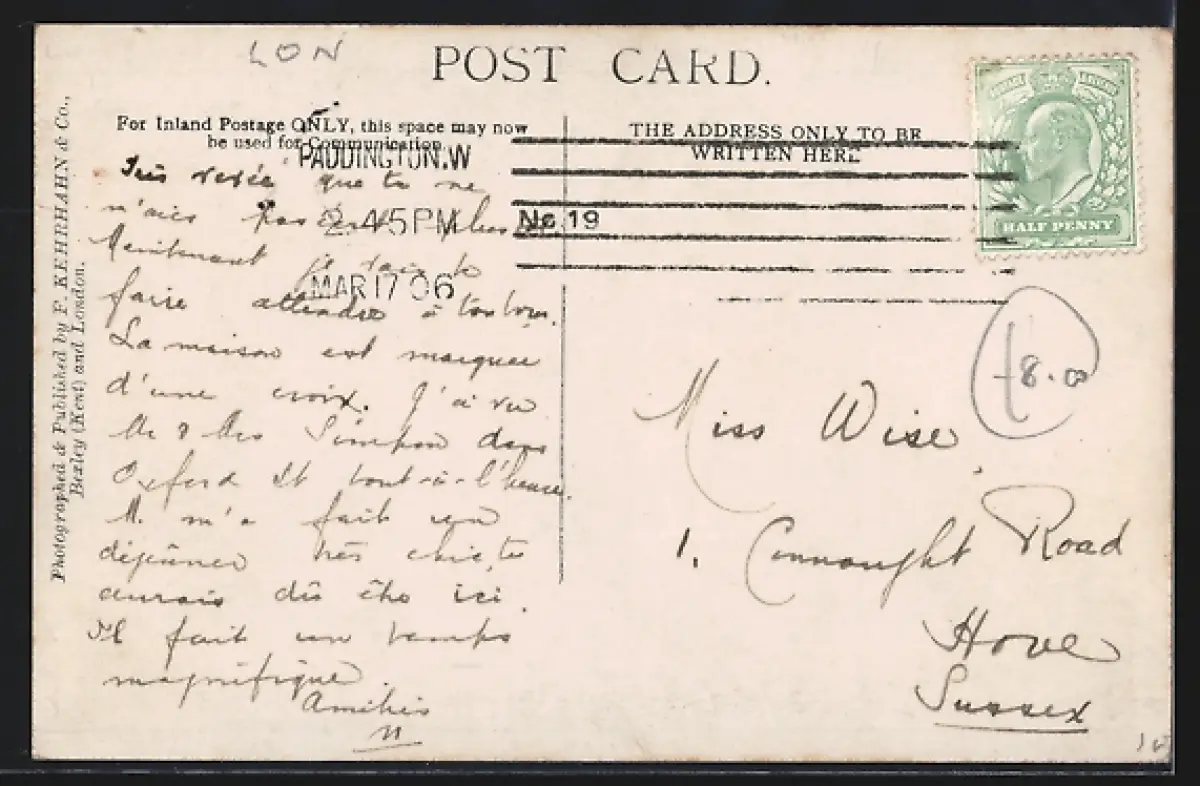 LON
POST CARD.
For Inland Postage ONLY, this space may now
be used for Communication.
THE ADDRESS ONLY TO BE
WRITTEN HERE
PADDINGTON.W
2.45PM No 19
MAR 17 06
POSTAGE REVENUE
HALF PENNY
Photographed & Published by F. KEHRHAHN & Co.,
Bexley (Kent) and London.
que tu ne
n'aies pas
Maintenant je vais te
faire attendre à
La maison est marquée
d'une croix. J'ai vu
Mr & Mrs Simpson dans
Oxford St tout-à-l'heure.
M. m'a fait un
déjeuner très chic, tu
aurais dû être ici.
Il fait un temps
magnifique.
Amitiés
£8.00
Miss Wise,
1. Connaught Road
Hove
Sussex